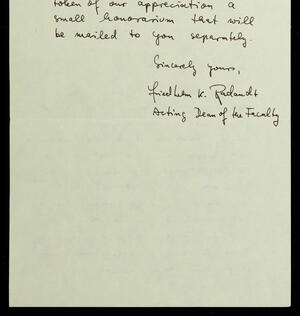 token of our appreciation a
small honorarium that will
be mailed to you separately.
Sincerely yours,
Friedhelm K. Radandt
Acting Dean of the Faculty